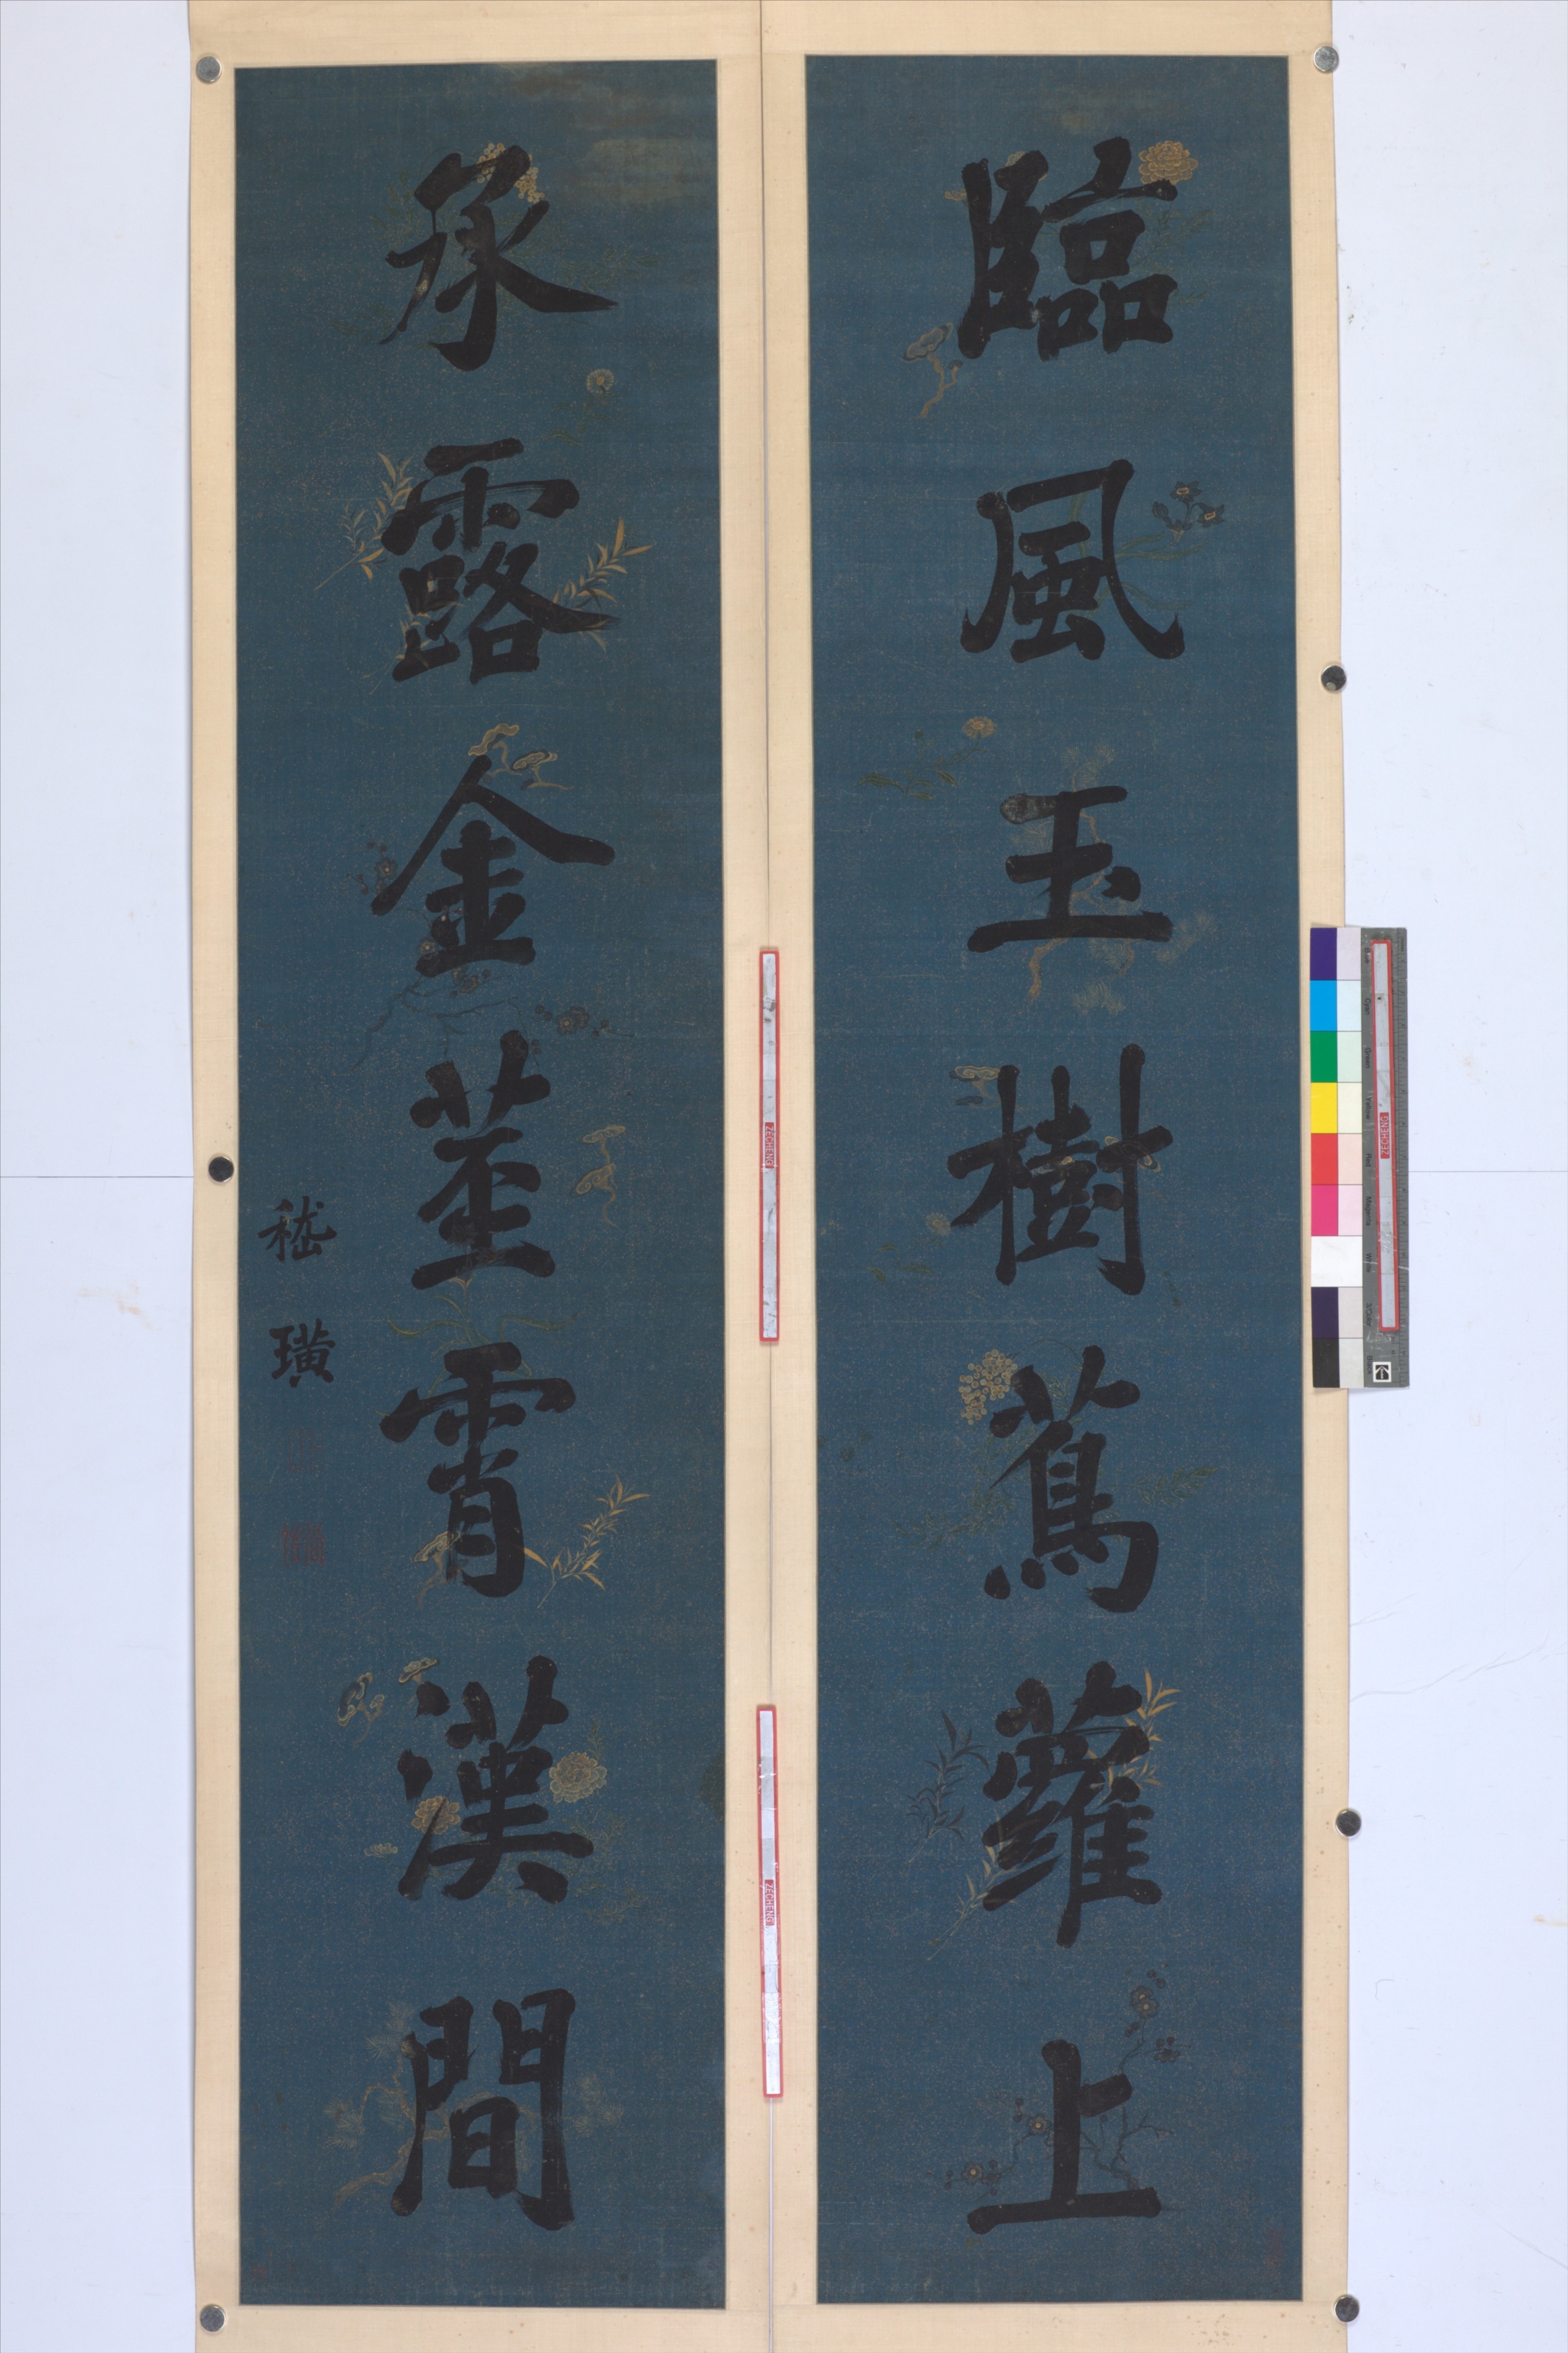 臨風玉樹蔦蘿上
承露金莖霄漢間
嵇璜
ZECHENG
ZECHENG
ZECHENG